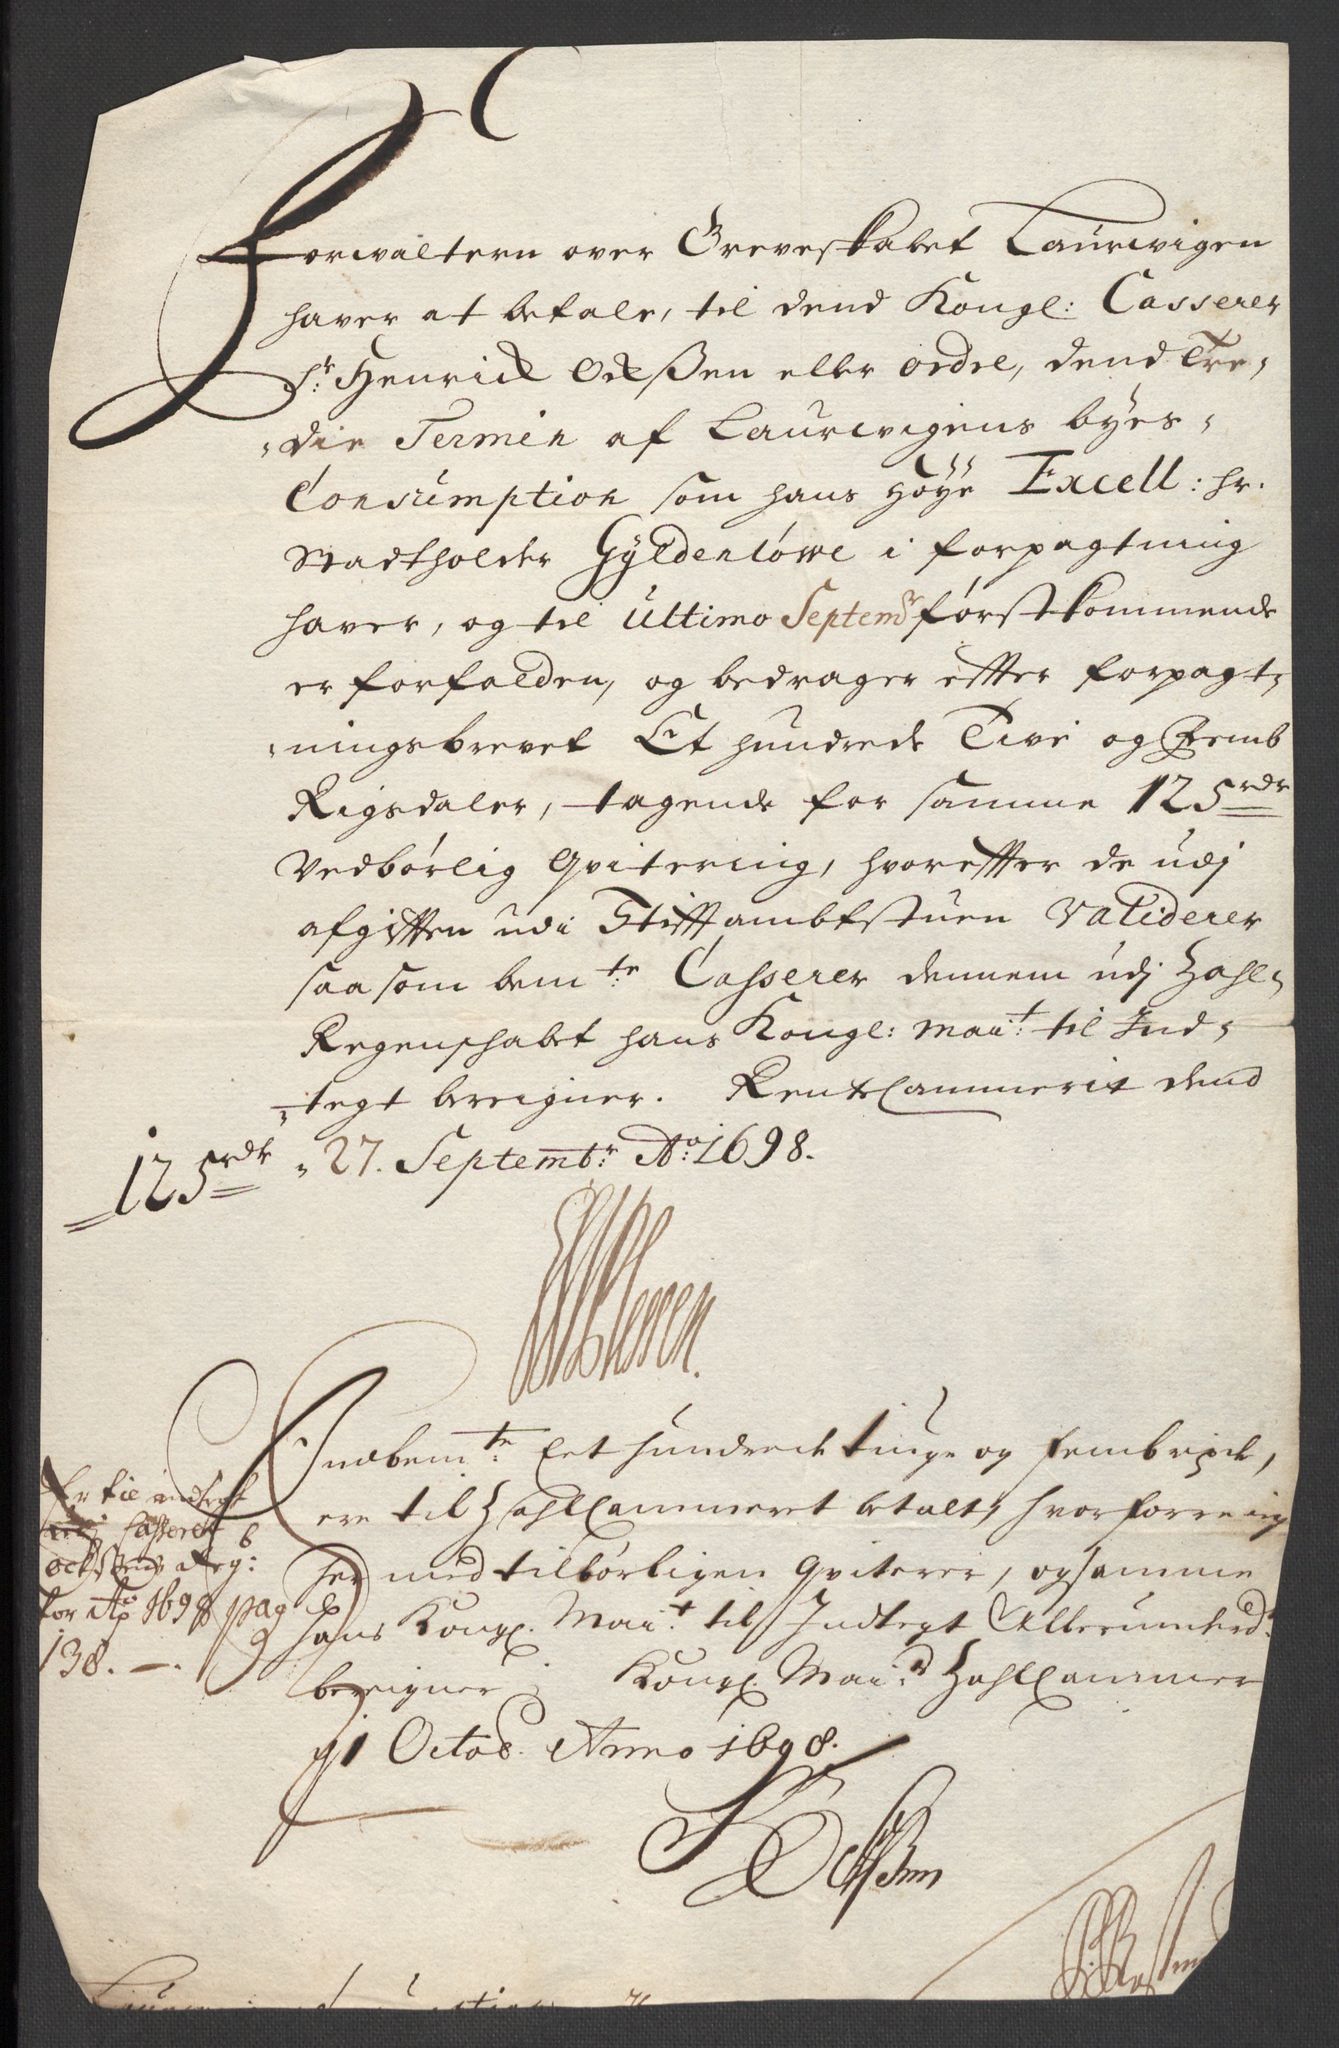 Forwaltern over Greveskabet Laurwigen
haver at betale, til dend Kongl: Casserer
Sr: Henrich Ocksen eller ordre, dend Tre,
,die Termin af Laurwigens byes,
Consumption som hans Höye Excell: hr.
Stadtholder Gyldenlöwe i forpagtning
haver, og til Ultimo Septembr förstkommende
er forfalden, og bedrager effter forpagt,
,ningsbrevet Et hundrede Tive og Femb
Rigsdaler, tagende for samme 125 rdr
Vedbörlig Qvitering, hvoreffter de udj
afgifften udi Stifftambtstuen Validerer
saa som bemte: Casserer dennem udj Zahl,
Regenschabet hans Kongl: Mait: til Ind,
,tegt bereigner. RenteCammerit dend
125 rdr ,27. Septembr: Ao: 1698.
Plessen.
Indbemte: Eet hundrede tiuge og fembrixdr,
ere til ZahlCammeret betalt, hvorforre ieg
her med tilbörligen Qviterer, og samme
hans Kongl. Mait: til Indtegt Allerunderd:
bereigner. Kongl. Mai:d ZahlCammer
d 1 Octob. Anno 1698.
HOckssen
Er til indtegt
udj Casserer
Ocksens Reg:
for Ao 1698 pag
138. —.